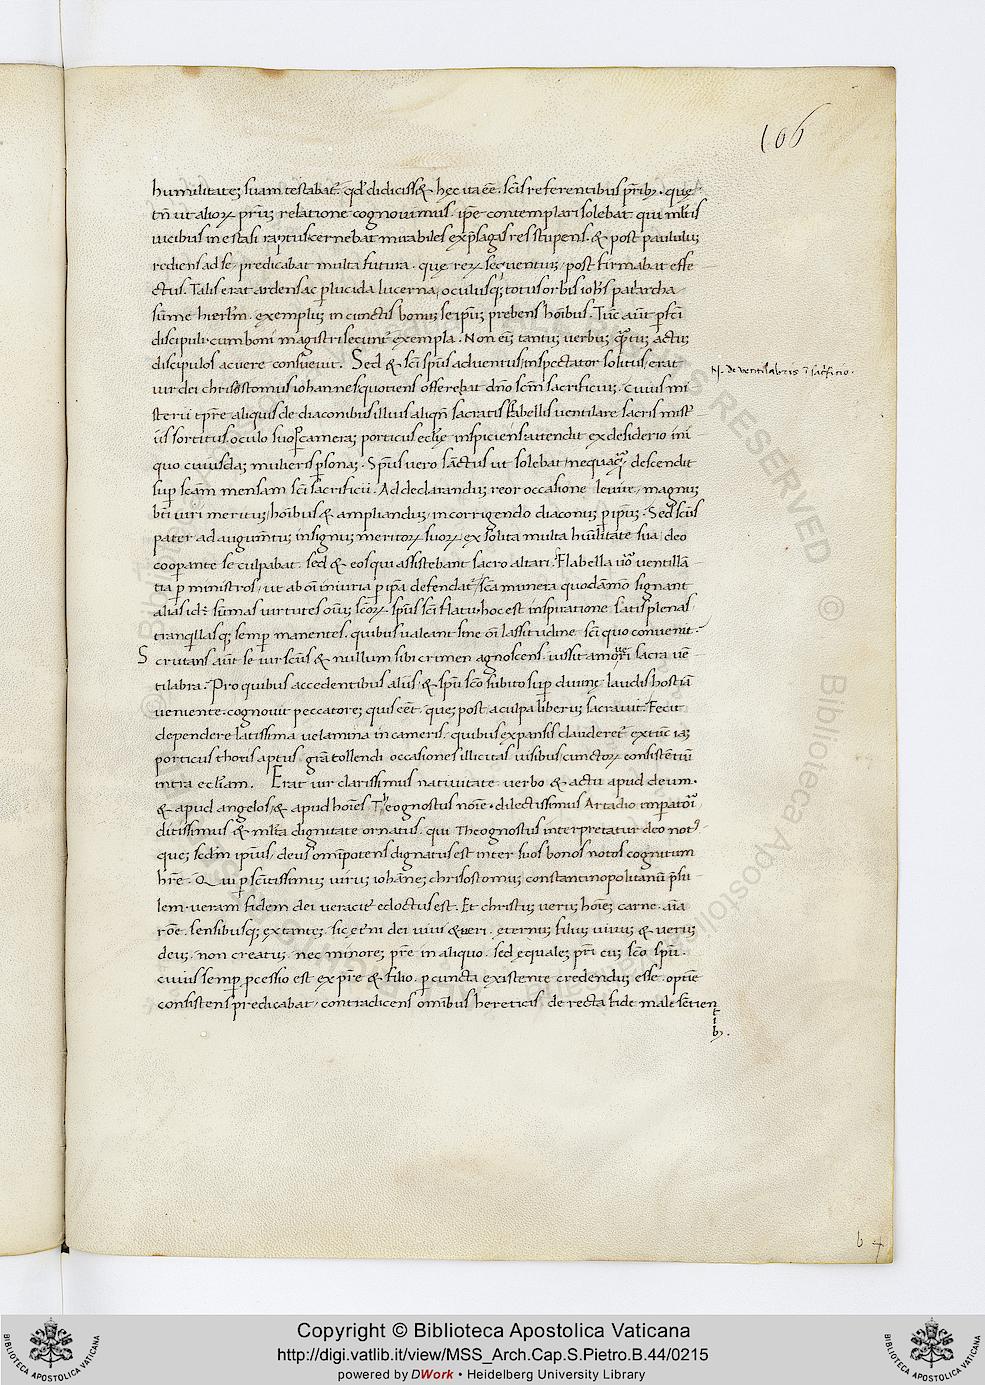 106
humilitatē suam testabat᷑. qđ didicisset hęc ita eē. scīs referentibus pr̄ib; . que
tn̄ ut alioꝝ prius relatione cognouimus. ipse contemplari solebat qui mltis
uicibus in estasi raptus cernebat mirabiles ex p̄sagas res stupens. & post paululū
rediens ad se predicabat multa futura. que reꝝ sequentium post firmabat effe
ctus. Talis erat ardens ac plucida lucerna, oculusq; totus orbis ioh̄s patriarcha
sūme hierłm. exemplum in cunctis bonum se ipsum prebens hōibus. Tūc aūt p̄fcī
discipuli. cum boni magistri secunt᷑ exempla. Non enī tantum uerbum quātum actus
discipulos acuere consueuit. Sed & scī sp̄us aduentus inspectator solitus erat
N. de ventilabris ī sacrificio.
uir dei chrisostomus iohannes quotiens offerebat dn̄o scm̄ sacrificium. cuius mi
sterii tp̄re aliquis de diaconibus illius aliqn̄ sacratis flabellis uentilare sacris mist
iis sortitus. oculo suo p̄ cameram porticus eccl̄ie inspiciens attendit ex desiderio ini
quo cuiusdam mulieris personam. Sp̄us uero sanctus ut solebat nequaq̄ descendit
sup̄ scam mensam scī sacrificii. Ad declarandum reor occasione leuite, magnum
bt̄i uiri meritum hōibus & ampliandum, in corrigendo diaconum p̄ ipsum. Sed scūs
pater ad augm̄tum insignium meritoꝝ suoꝝ ex solita multa humilitate sua deo
coop̄ante se culpabat. sed & eos qui assistebant sacro altari. Flabella uō uentillā
tia p̄ ministros, ut ab oī iniuria p̄ ipsa defendat᷑ sc̄a munera quodāmo significant
alas id ē sūmas uirtutes oīum scōꝝ. sp̄us scī flatu. hoc est inspiratione satis plenas
tranq̇llasq; semp̄ manentes. quibus ualeant sine oī lassitudine scī quo conuenit.
Scrutans aūt se uir scūs & nullum sibi crimen agnoscens. iussit amoueri sacra uē
tilabra. Pro quibus accedentibus aliis, & sp̄u scō subito sup̄ diuine laudis hostiā
ueniente. cognouit peccatorem quis eēt. quem post a culpa liberum sacrauit. Fecit
dependere latissima uelamina in cameris. quibus expansis clauderet᷑ extūc iam
porticus thoris aptus grā tollendi occasiones illicitas uisibus cunctoꝝ consistentium
intra eccl̄iam. Erat uir clarissimus natiuitate uerbo & actu apud deum.
& apud angelos, & apud hōies Theognostus noīe. dilectissimus Arcadio imperatori
ditissimus & mlta dignitate ornatus. qui Theognostus interpretatur deo not᷒.
quem sedm̄ ipsius, deus omīpotens dignatus est inter suos bonos notos cognitum
hr̄e. Qui p̄ scītissimum uirum iohannem chrisostomum constantinopolitanū p̄su
lem. ueram fidem dei ueracit᷑ edoctus est. Et christum uerum hōiem carne. aīa
rōne. sensibusq; extantem. sic et eīm dei uiui & ueri. eternus filius uiuus & uerus
deus. non creatus. nec minorem pr̄e in aliquo. sed equalem pr̄i cum scō sp̄u.
cuius semp̄ p̄cessio est ex pr̄e & filio. p̄ cuncta existente credendum esse. optīe
consistens predicabat. contradicens omnibus hereticis. de recta fide male sentien
tib;.
b 4
Copyright © Biblioteca Apostolica Vaticana
http://digi.vatlib.it/view/MSS_Arch.Cap.S.Pietro.B.44/0215
powered by DWork • Heidelberg University Library